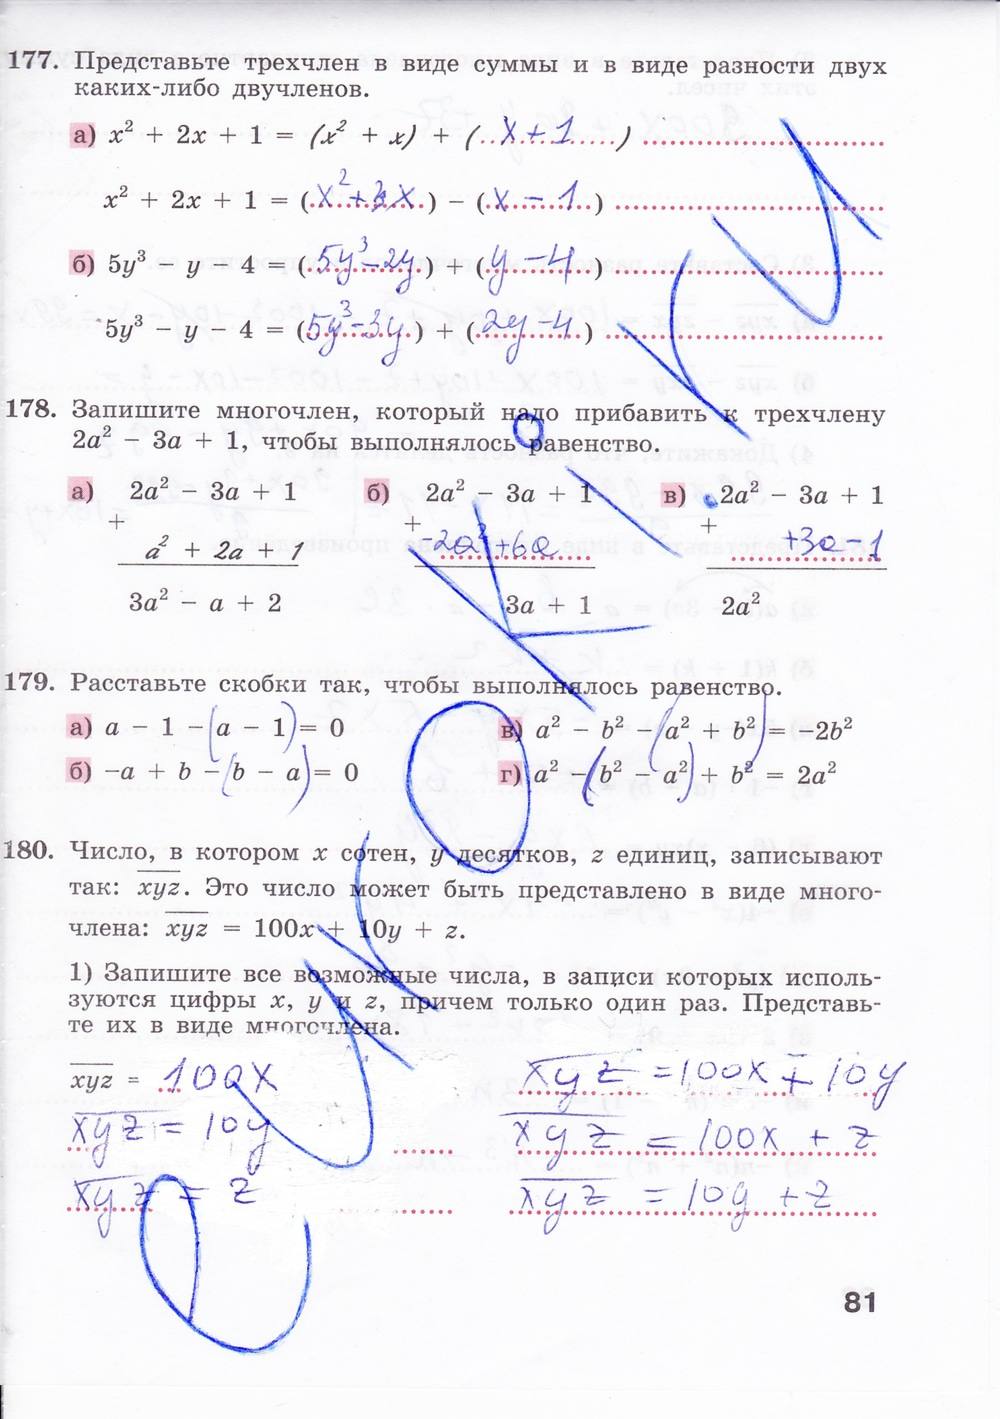 177. Представьте трехчлен в виде суммы и в виде разности двух
каких-либо двучленов.
а) x² + 2x + 1 = (x² + x) + (x + 1)
x² + 2x + 1 = (x² + 3x) − (x − 1)
б) 5y³ − y − 4 = (5y³ − 2y) + (y − 4)
5y³ − y − 4 = (5y³ − 3y) + (2y − 4)
178. Запишите многочлен, который надо прибавить к трехчлену
2a² − 3a + 1, чтобы выполнялось равенство.
а) 2a² − 3a + 1 б) 2a² − 3a + 1 в) 2a² − 3a + 1
+ + +
a² + 2a + 1 −2a² + 6a +3a − 1
3a² − a + 2 3a + 1 2a²
179. Расставьте скобки так, чтобы выполнялось равенство.
а) a − 1 − (a − 1) = 0 в) a² − b² − (a² + b²) = −2b²
б) −a + b − (b − a) = 0 г) a² − (b² − a²) + b² = 2a²
180. Число, в котором x сотен, y десятков, z единиц, записывают
так: xyz. Это число может быть представлено в виде много-
члена: xyz = 100x + 10y + z.
1) Запишите все возможные числа, в записи которых исполь-
зуются цифры x, y и z, причем только один раз. Представь-
те их в виде многочлена.
xyz = 100x xyz = 100x + 10y
xyz = 10y xyz = 100x + z
xyz = z xyz = 10y + z
81